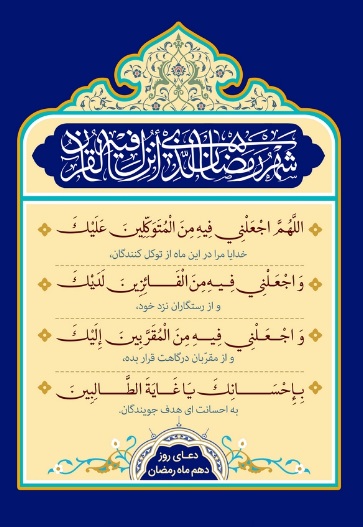 شَهْرُ رَمَضَانَ الَّذِي أُنْزِلَ فِيهِ الْقُرْآنُ
اللَّهُمَّ اجْعَلْنِي فِيهِ مِنَ الْمُتَوَكِّلِينَ عَلَيْكَ
خدایا مرا در این ماه از توکل کنندگان،
وَ اجْعَلْنِي فِيهِ مِنَ الْفَائِزِينَ لَدَيْكَ
و از رستگاران نزد خود،
وَ اجْعَلْنِي فِيهِ مِنَ الْمُقَرَّبِينَ إِلَيْكَ
و از مقرّبان درگاهت قرار بده،
بِإِحْسَانِكَ يَا غَايَةَ الطَّالِبِينَ
به احسانت ای هدف جویندگان.
دعای روز
دهم ماه رمضان